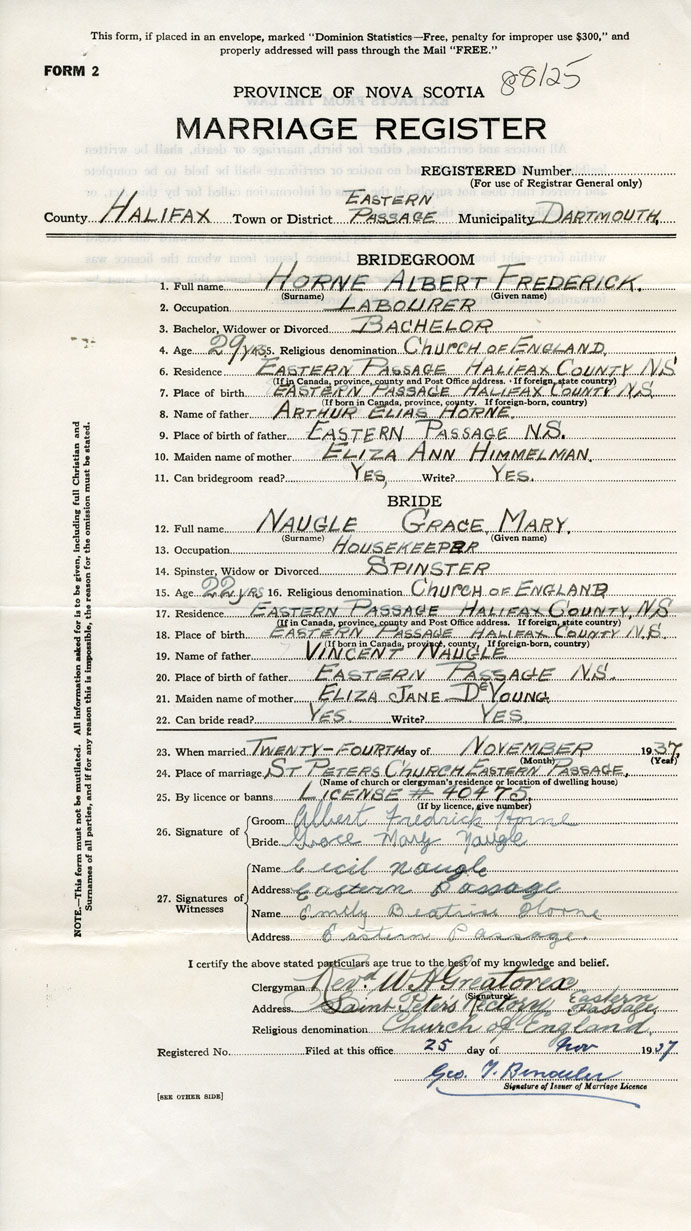 This form, if placed in an envelope, marked "Dominion Statistics—Free, penalty for improper use $300," and
properly addressed will pass through the Mail "FREE."
FORM 2
88125
PROVINCE OF NOVA SCOTIA
MARRIAGE REGISTER
REGISTERED Number
(For use of Registrar General only)
County HALIFAX Town or District EASTERN PASSAGE Municipality DARTMOUTH
BRIDEGROOM
1. Full name HORNE ALBERT FREDERICK.
(Surname) (Given name)
2. Occupation LABOURER
3. Bachelor, Widower or Divorced BACHELOR
4. Age 29 yrs 5. Religious denomination CHURCH OF ENGLAND
6. Residence EASTERN PASSAGE HALIFAX COUNTY N.S
(If in Canada, province, county and Post Office address. If foreign, state country)
7. Place of birth EASTERN PASSAGE HALIFAX COUNTY N.S
(If born in Canada, province, county. If foreign-born, country)
8. Name of father ARTHUR ELIAS HORNE.
9. Place of birth of father EASTERN PASSAGE N.S.
10. Maiden name of mother ELIZA ANN HIMMELMAN.
11. Can bridegroom read? YES, Write? YES.
BRIDE
12. Full name NAUGLE GRACE MARY.
(Surname) (Given name)
13. Occupation HOUSEKEEPER
14. Spinster, Widow or Divorced SPINSTER
15. Age 22 yrs 16. Religious denomination CHURCH OF ENGLAND
17. Residence EASTERN PASSAGE HALIFAX COUNTY, N.S
(If in Canada, province, county and Post Office address. If foreign, state country)
18. Place of birth EASTERN PASSAGE HALIFAX COUNTY N.S.
(If born in Canada, province, county. If foreign-born, country)
19. Name of father VINCENT NAUGLE
20. Place of birth of father EASTERN PASSAGE N.S.
21. Maiden name of mother ELIZA JANE DeYOUNG
22. Can bride read? YES. Write? YES
23. When married TWENTY-FOURTH day of NOVEMBER 1937
(Month) (Year)
24. Place of marriage ST PETERS CHURCH EASTERN PASSAGE,
(Name of church or clergyman's residence or location of dwelling house)
25. By licence or banns LICENSE # 40475
(If by licence, give number)
26. Signature of Groom Albert Fredrick Horne
Bride Grace Mary Naugle
27. Signatures of Witnesses
Name Cecil Naugle
Address Eastern Passage
Name Emily Beatrice Horne
Address Eastern Passage.
I certify the above stated particulars are true to the best of my knowledge and belief.
Clergyman Revd W H Greatorex
(Signature)
Address Saint Peter's Rectory Eastern Passage
Religious denomination Church of England.
Registered No. Filed at this office 25 day of Nov 1937
Geo. T.
Signature of Issuer of Marriage Licence
[SEE OTHER SIDE]
NOTE.—This form must not be mutilated. All information asked for is to be given, including full Christian and
Surnames of all parties, and if for any reason this is impossible, the reason for the omission must be stated.